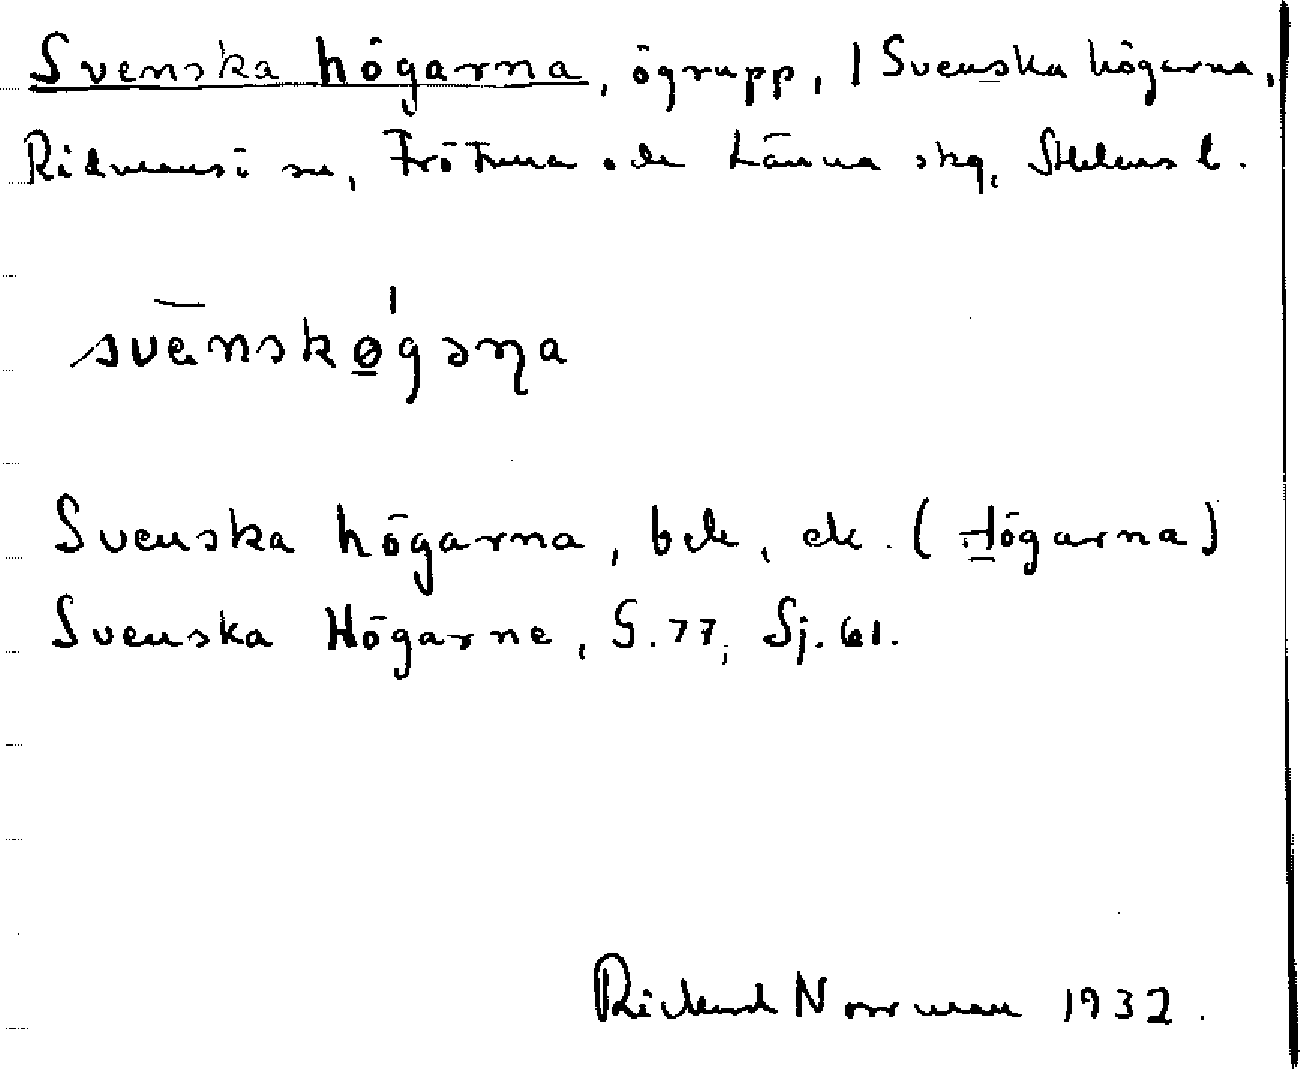 Svenska högarna, ögrupp, / Svenska högarna,
Ridmansö sn, Frötuna och Länna skg, Sthlms l.
svänskǿ̲gəɳa
Svenska högarna, bek, ek. (Högarna)
Svenska Högarne, G.77, Sj.61.
Rickard Norrman 1932.